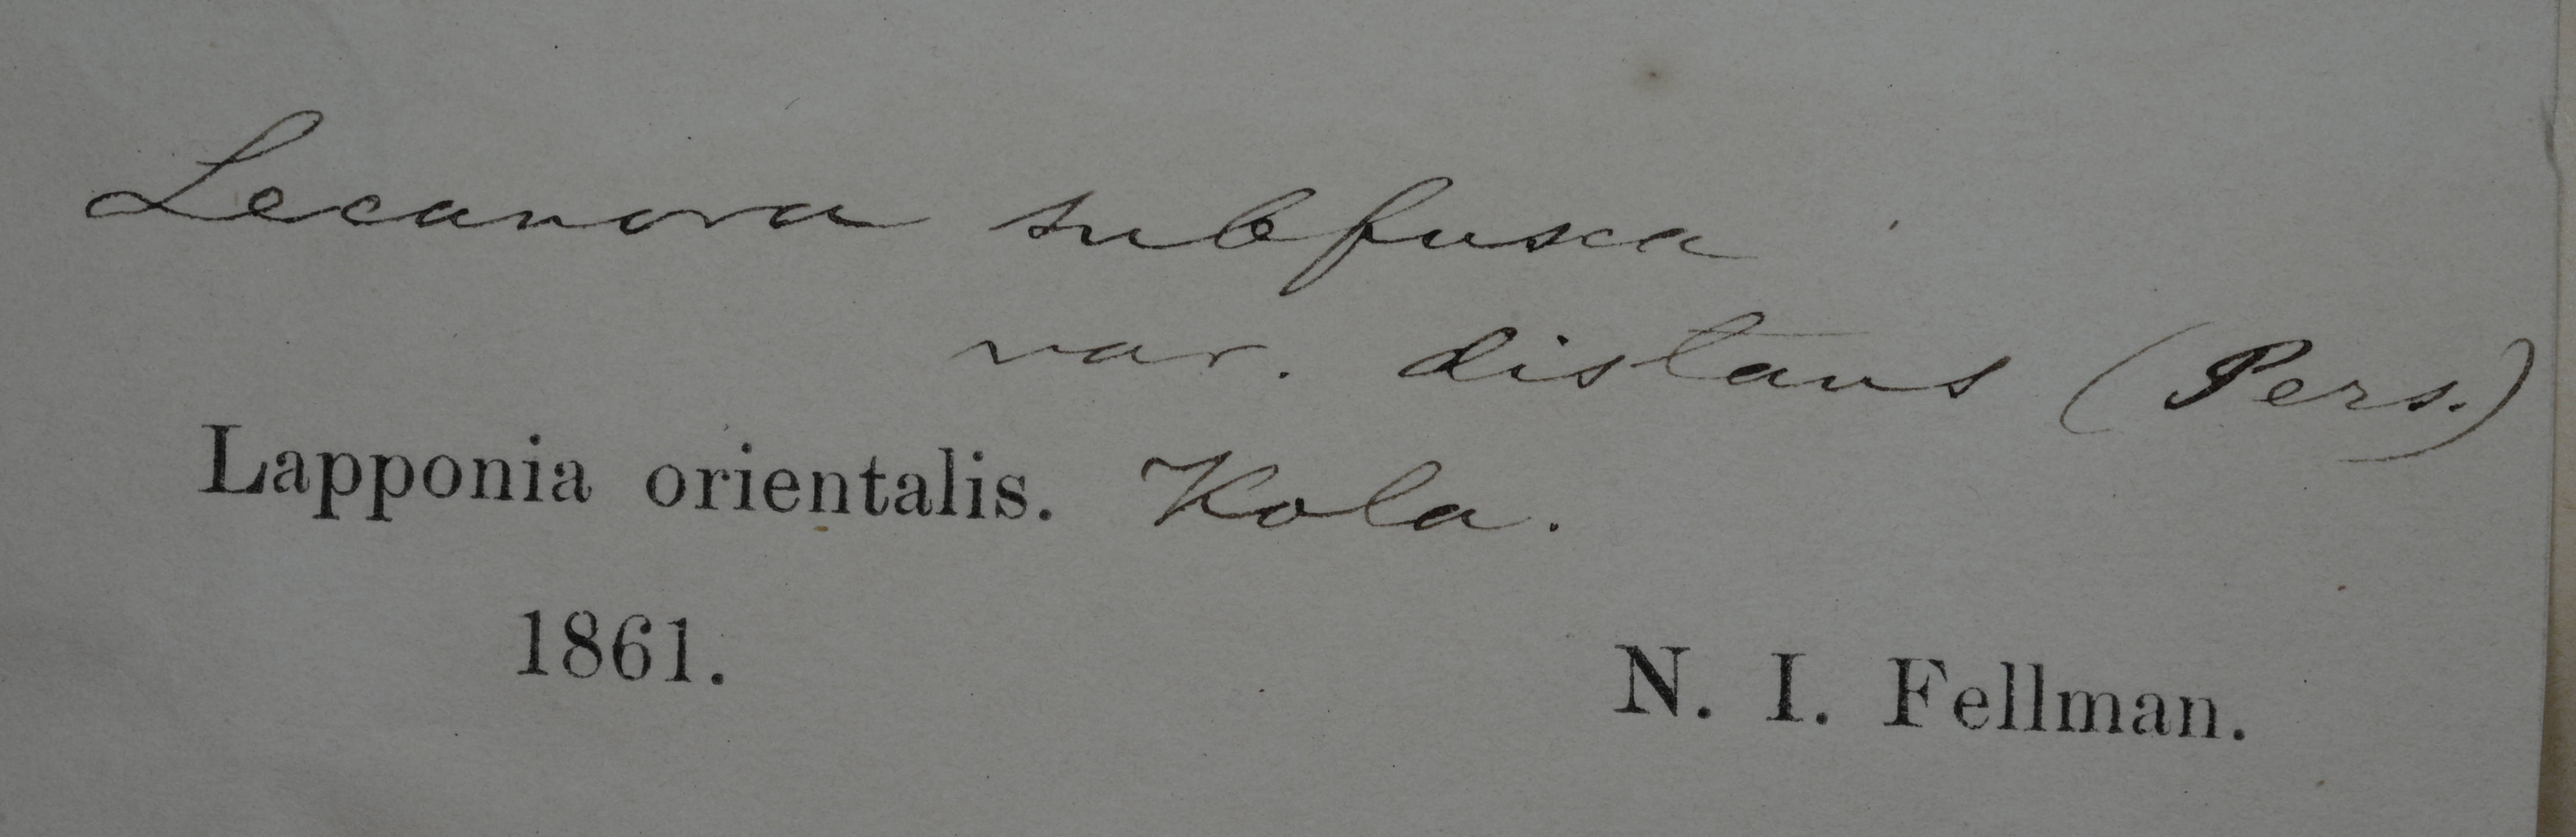 Lecanora subfusca
var. distans (Pers.)
Lapponia orientalis. Kola.
1861.
N. I. Fellman.